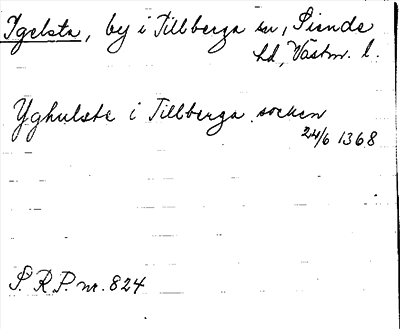 Igelsta, by i Tillberga sn, Siende
hd, Västm. l.
Yghulste i Tillberga socken
24/6 1368
S. R. P. nr. 824